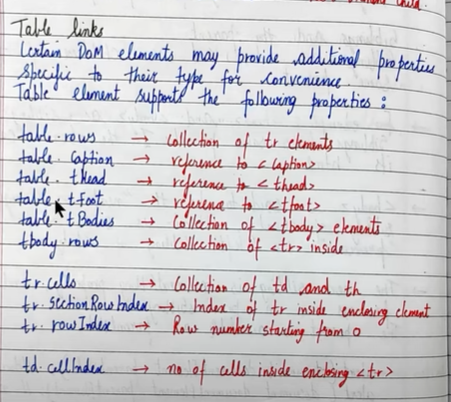 Table links
Certain DOM elements may provide additional properties
specific to their type for convenience
Table element supports the following properties :
table.rows → Collection of tr elements
table.caption → reference to <caption>
table.tHead → reference to <thead>
table.tFoot → reference to <tfoot>
table.tBodies → Collection of <tbody> elements
tbody.rows → Collection of <tr> inside
tr.cells → Collection of td and th
tr.sectionRowIndex → Index of tr inside enclosing element
tr.rowIndex → Row number starting from 0
td.cellIndex → no of cells inside enclosing <tr>